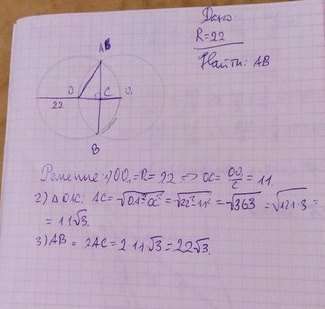 Дано
R=22
Найти: AB
A
O
C
O₁
22
B
Решение: 1) OO₁=R=22 => OC=OO₁/2=11
2) △OAC: AC=√OA²-OC²=√22²-11²=√363=√121·3=
=11√3.
3) AB=2AC=2·11√3=22√3.